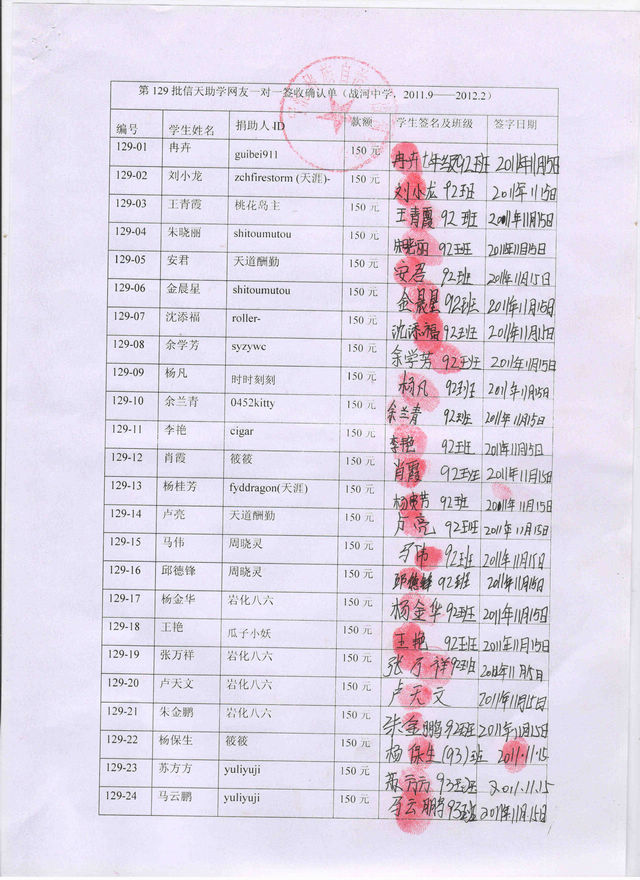 第129批信天助学网友一对一签收确认单（战河中学，2011.9——2012.2）
编号 学生姓名 捐助人ID 款额 学生签名及班级 签字日期
129-01 冉卉 guibei911 150元 冉卉七年级92班 2011年11月15日
129-02 刘小龙 zchfirestorm (天涯)- 150元 刘小龙 92班 2011年11月15日
129-03 王青霞 桃花岛主 150元 王青霞 92班 2011年11月15日
129-04 朱晓丽 shitoumutou 150元 朱晓丽 92班 2011年11月15日
129-05 安君 天道酬勤 150元 安君 92班 2011年11月15日
129-06 金晨星 shitoumutou 150元 金晨星 92班 2011年11月15日
129-07 沈添福 roller- 150元 沈添福 92班 2011年11月15日
129-08 余学芳 syzywc 150元 余学芳 92班 2011年11月15日
129-09 杨凡 时时刻刻 150元 杨凡 92班 2011年11月15日
129-10 余兰青 0452kitty 150元 余兰青 92班 2011年11月15日
129-11 李艳 cigar 150元 李艳 92班 2011年11月15日
129-12 肖霞 筱筱 150元 肖霞 92班 2011年11月15日
129-13 杨桂芳 fyddragon(天涯) 150元 杨贵芳 92班 2011年11月15日
129-14 卢亮 天道酬勤 150元 卢亮 92班 2011年11月15日
129-15 马伟 周晓灵 150元 马伟 92班 2011年11月15日
129-16 邱德锋 周晓灵 150元 邱德锋 92班 2011年11月15日
129-17 杨金华 岩化八六 150元 杨金华 92班 2011年11月15日
129-18 王艳 瓜子小妖 150元 王艳 92班 2011年11月15日
129-19 张万祥 岩化八六 150元 张万祥 92班 2011年11月15日
129-20 卢天文 岩化八六 150元 卢天文 2011年11月15日
129-21 朱金鹏 岩化八六 150元 朱金鹏 92班 2011年11月15日
129-22 杨保生 筱筱 150元 杨保生(93)班 2011.11.15
129-23 苏方方 yuliyuji 150元 苏方方 93班 2011.11.15
129-24 马云鹏 yuliyuji 150元 马云鹏 93班 2011年11月15日